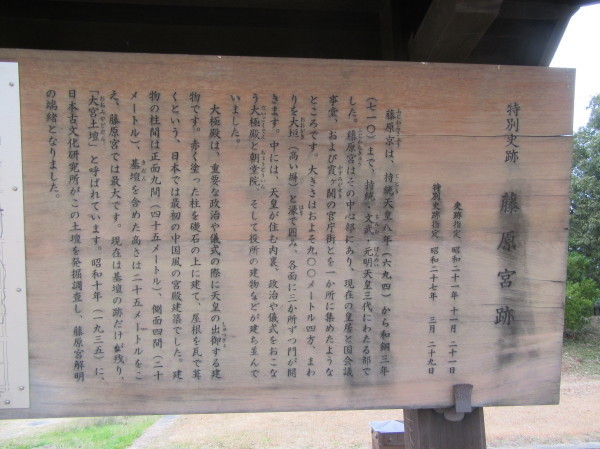 特別史跡 藤原宮跡
史跡指定 昭和二十一年 十一月 二十一日
特別史跡指定 昭和二十七年 三月 二十九日
藤原京は、持統天皇八年（六九四）から和銅三年
（七一〇）まで、持統・文武・元明天皇三代にわたる都で
した。藤原宮はその中心部にあり、現在の皇居と国会議
事堂、および霞ヶ関の官庁街とを一か所に集めたような
ところです。大きさはおよそ九〇〇メートル四方、まわ
りを大垣（高い塀）と濠で囲み、各面に三か所ずつ門が開
きます。中には、天皇が住む内裏、政治や儀式をおこな
う大極殿と朝堂院、そして役所の建物などが建ち並んで
いました。
大極殿は、重要な政治や儀式の際に天皇の出御する建
物です。赤く塗った柱を礎石の上に建て、屋根を瓦で葺
くという、日本では最初の中国風の宮殿建築でした。建
物の柱間は正面九間（四十五メートル）、側面四間（二十
メートル）、基壇を含めた高さは二十五メートルをこ
え、藤原宮では最大です。現在は基壇の跡だけが残り、
「大宮土壇」と呼ばれています。昭和十年（一九三五）に、
日本古文化研究所がこの土壇を発掘調査し、藤原宮解明
の端緒となりました。